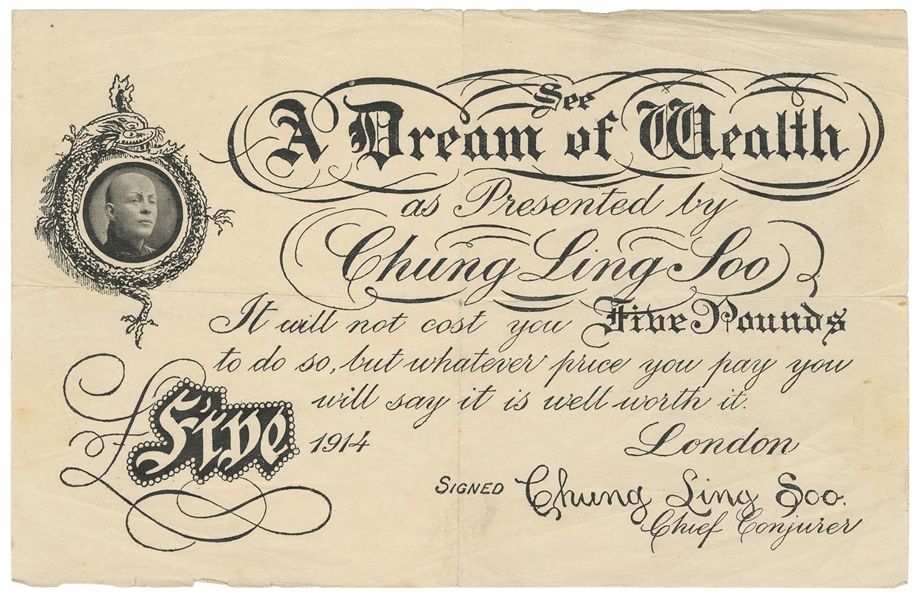 See
A Dream of Wealth
as Presented by
Chung Ling Soo
It will not cost you Five Pounds
to do so, but whatever price you pay you
will say it is well worth it.
£ Five 1914
London
SIGNED Chung Ling Soo.
Chief Conjurer